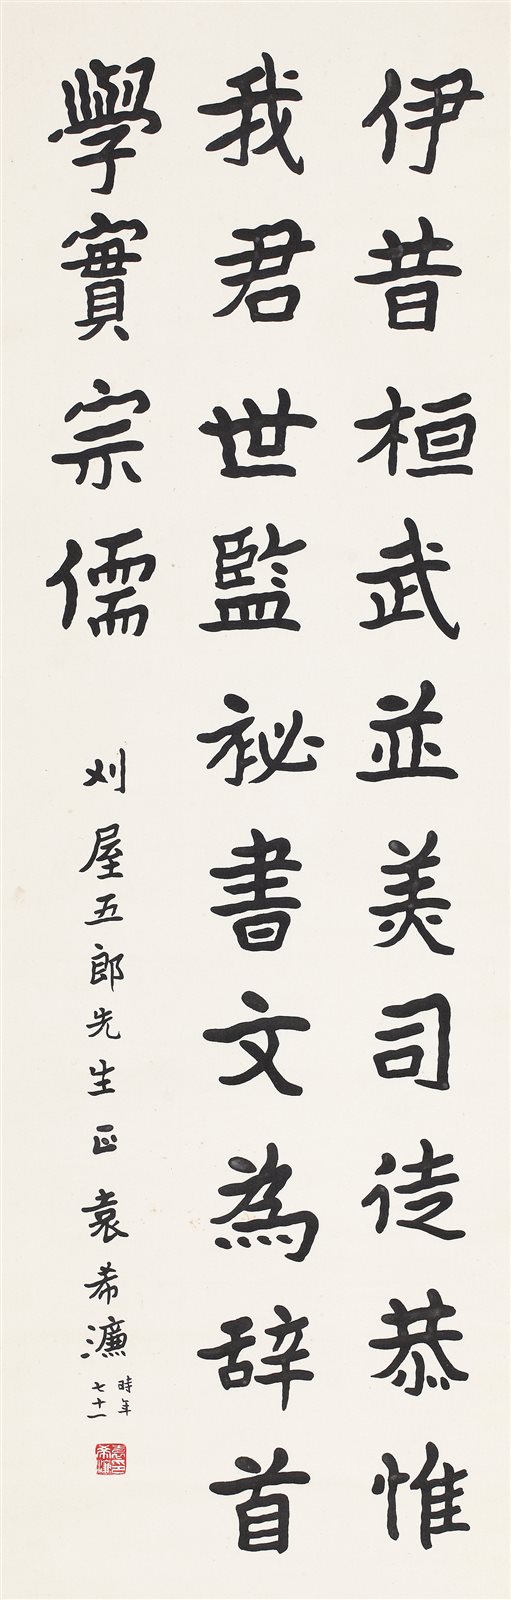 伊昔桓武並美司徒恭惟
我君世監祕書文為辞首
學實宗儒
刈屋五郎先生正 袁希濂
時年
七十一
袁希濂印